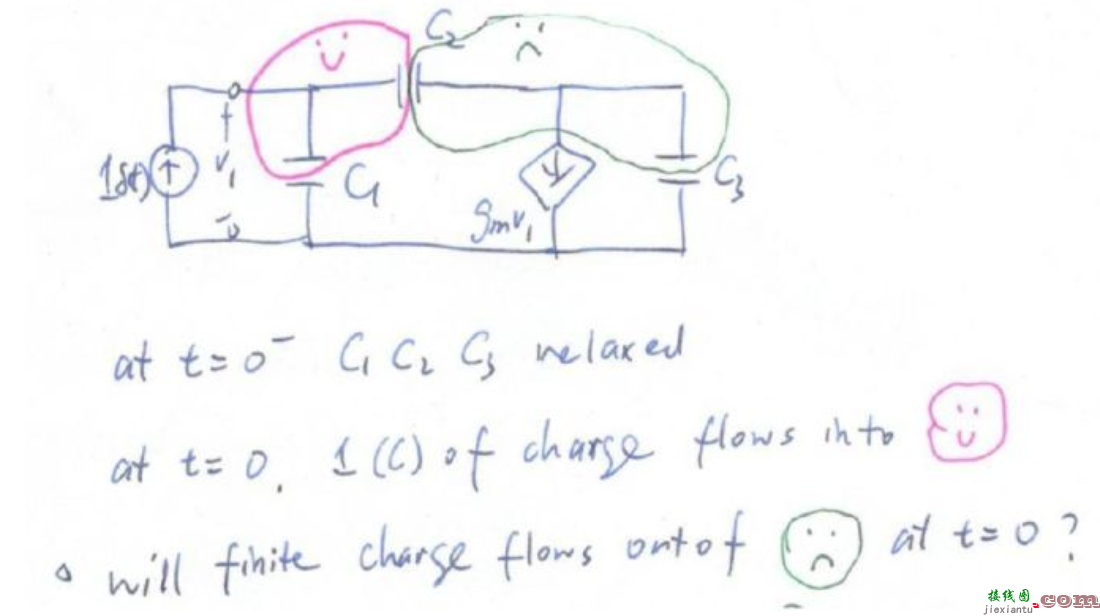 C2
1δ(t)
+
V1
-
C1
gmv1
C3
at t=0⁻ C1 C2 C3 relaxed
at t=0, 1 (C) of charge flows into
will finite charge flows ontof at t=0?
接线图.com
jiexiantu